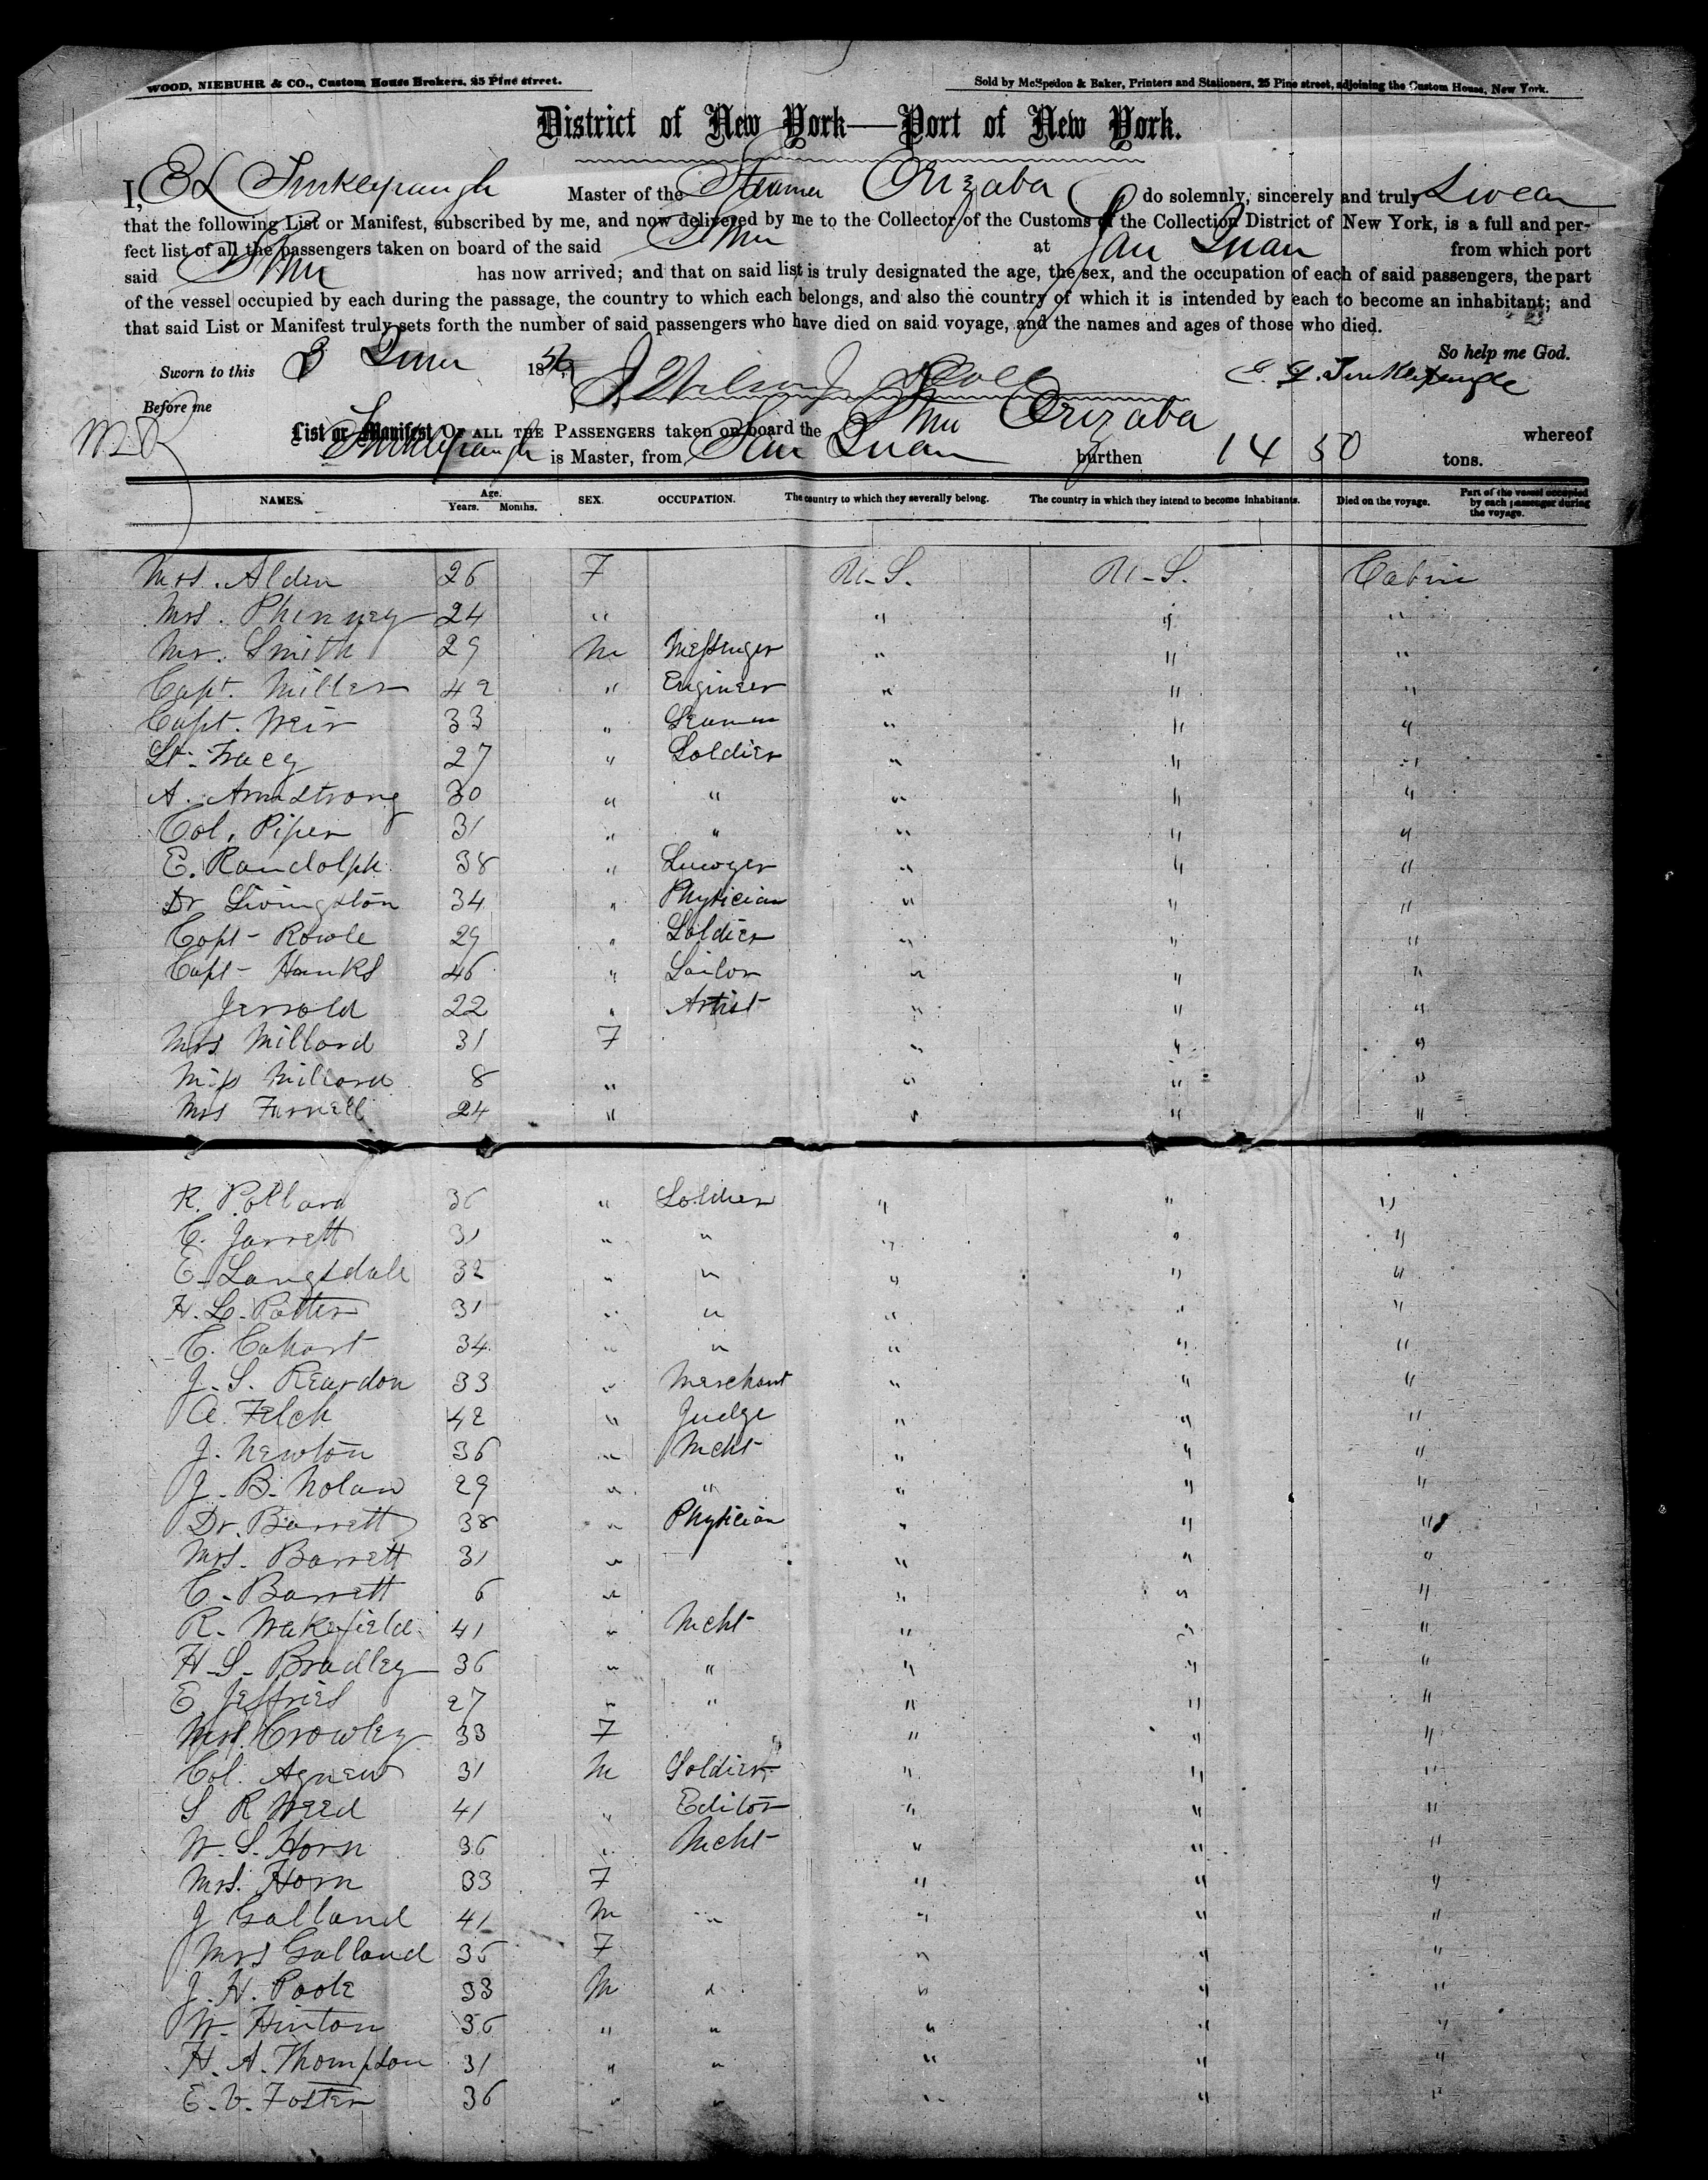 WOOD, NIEBUHR & CO., Custom House Brokers, 25 Pine street.
Sold by McSpedon & Baker, Printers and Stationers, 25 Pine street, adjoining the Custom House, New York.
District of New York—Port of New York.
I, E L Tinklepaugh Master of the Steamer Orizaba do solemnly, sincerely and truly Swear
that the following List or Manifest, subscribed by me, and now delivered by me to the Collector of the Customs of the Collection District of New York, is a full and per-
fect list of all the passengers taken on board of the said Stmr at San Juan from which port
said Stmr has now arrived; and that on said list is truly designated the age, the sex, and the occupation of each of said passengers, the part
of the vessel occupied by each during the passage, the country to which each belongs, and also the country of which it is intended by each to become an inhabitant; and
that said List or Manifest truly sets forth the number of said passengers who have died on said voyage, and the names and ages of those who died.
So help me God.
Sworn to this 3 June 1856 E. L. Tinklepaugh
Before me
List or Manifest OF ALL THE PASSENGERS taken on board the Stmr Orizaba whereof
Tinklepaugh is Master, from San Juan burthen 1450 tons.
NAMES. Age. Years. Months. SEX. OCCUPATION. The country to which they severally belong. The country in which they intend to become inhabitants. Died on the voyage. Part of the vessel occupied by each passenger during the voyage.
Mrs. Alden 26 F U-S. U-S. Cabin
Mrs. Phinney 24 " " " "
Mr. Smith 29 M Messenger " " "
Capt. Miller 42 " Engineer " " "
Capt. Weir 33 " Seaman " " "
Lt. Tracy 27 " Soldier " " "
A. Armstrong 30 " " " " "
Col. Piper 31 " " " " "
E. Randolph 38 " Lawyer " " "
Dr Livingston 34 " Physician " " "
Capt - Rowle 29 " Soldier " " "
Capt - Hanks 46 " Sailor " " "
Jerrold 22 " Artist " " "
Mrs Millard 31 F " " "
Miss Millard 8 " " " "
Mrs Farrell 24 " " " "
R. Pollard 36 " Soldier " " "
C. Jarrett 31 " " " " "
E. Langsdale 32 " " " " "
H. L. Potter 31 " " " " "
C. Cahart 34 " " " " "
J. S. Reardon 33 " Merchant " " "
A. Felch 42 " Judge " " "
J. Newton 36 " Mcht " " "
J. B. Nolan 29 " " " " "
Dr. Barrett 38 " Physician " " "
Mrs. Barrett 31 " " " "
C. Barrett 6 " " " "
R. Wakefield 41 " Mcht " " "
H. S. Bradley 36 " " " " "
E Jeffries 27 " " " " "
Mrs. Crowley 33 F " " "
Col. Agnew 31 M Soldier " " "
S R Weed 41 " Editor " " "
W. S. Horn 36 " Mcht " " "
Mrs. Horn 33 F " " "
J Galland 41 M " " " "
Mrs Galland 35 F " " "
J. H. Poole 33 M " " " "
W. Hinton 36 " " " " "
H. A. Thompson 31 " " " " "
E. V. Foster 36 " " " " "